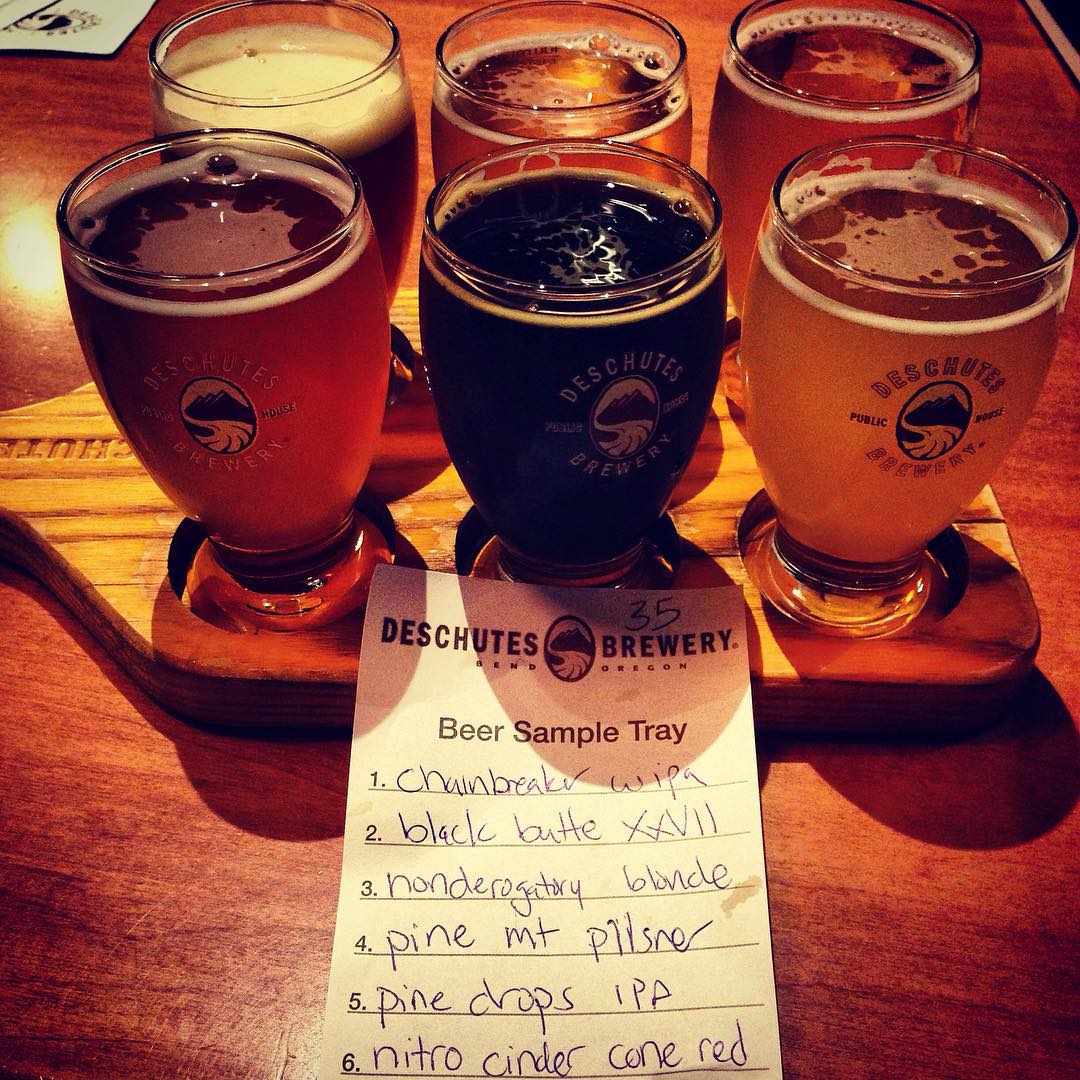 DESCHUTES
PUBLIC HOUSE
BREWERY
DESCHUTES
PUBLIC HOUSE
BREWERY
DESCHUTES
PUBLIC HOUSE
BREWERY®
CHUTE
35
DESCHUTES BREWERY®
BEND OREGON
Beer Sample Tray
1. Chainbreaker wipa
2. black butte XXVII
3. nonderogatory blonde
4. pine mt pillsner
5. pine drops IPA
6. nitro cinder cone red